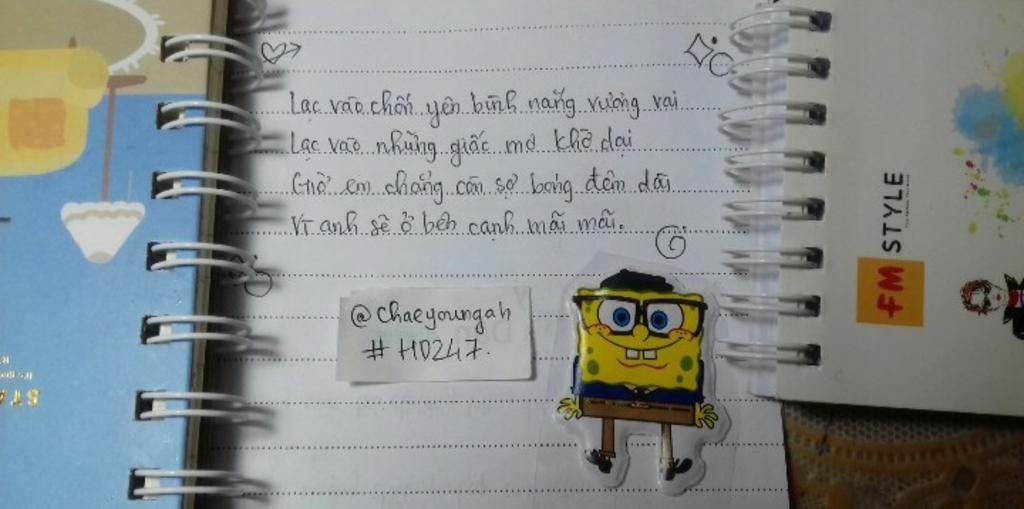 Lạc vào chốn yên bình nắng vương vai
Lạc vào những giấc mơ khờ dại
Giờ em chẳng còn sợ bóng đêm dài
Vì anh sẽ ở bên cạnh mãi mãi.
@chaeyoungah
#HD247.
FM
STYLE
STA